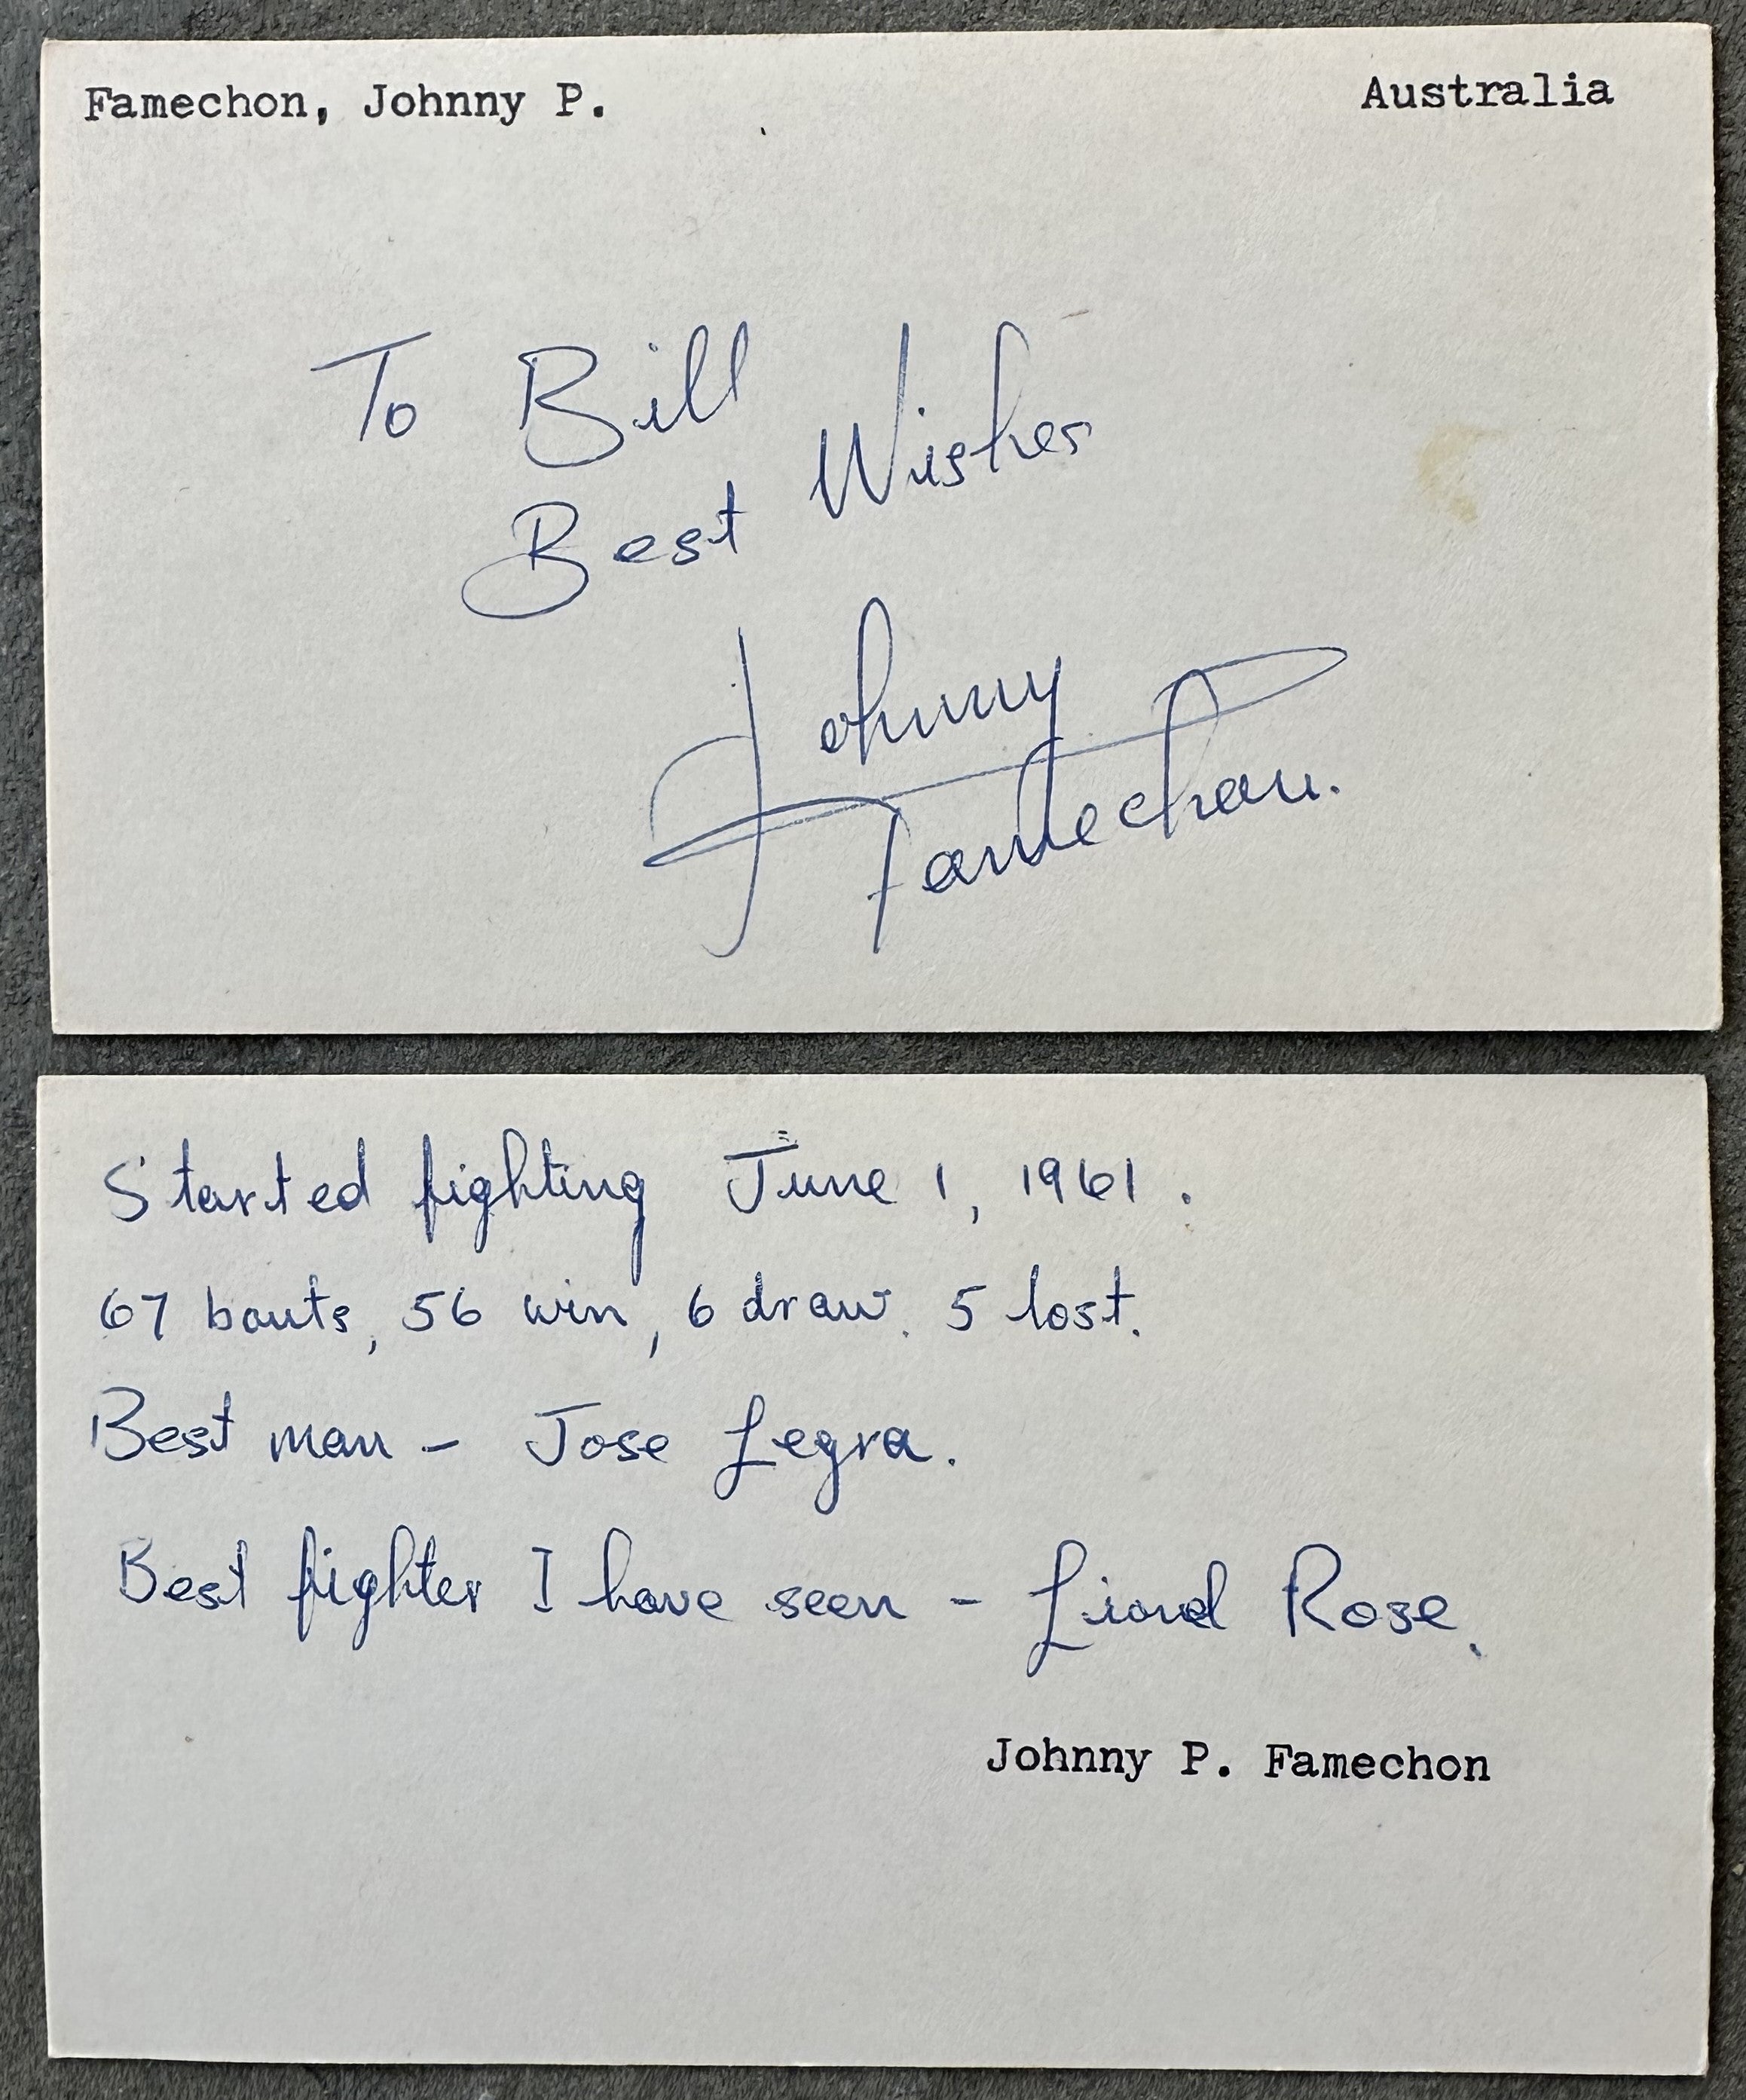 Famechon, Johnny P. Australia
To Bill
Best Wishes
Johnny
Famechon.
Started fighting June 1, 1961.
67 bouts, 56 win, 6 draw. 5 lost.
Best man - Jose Legra.
Best fighter I have seen - Lionel Rose.
Johnny P. Famechon